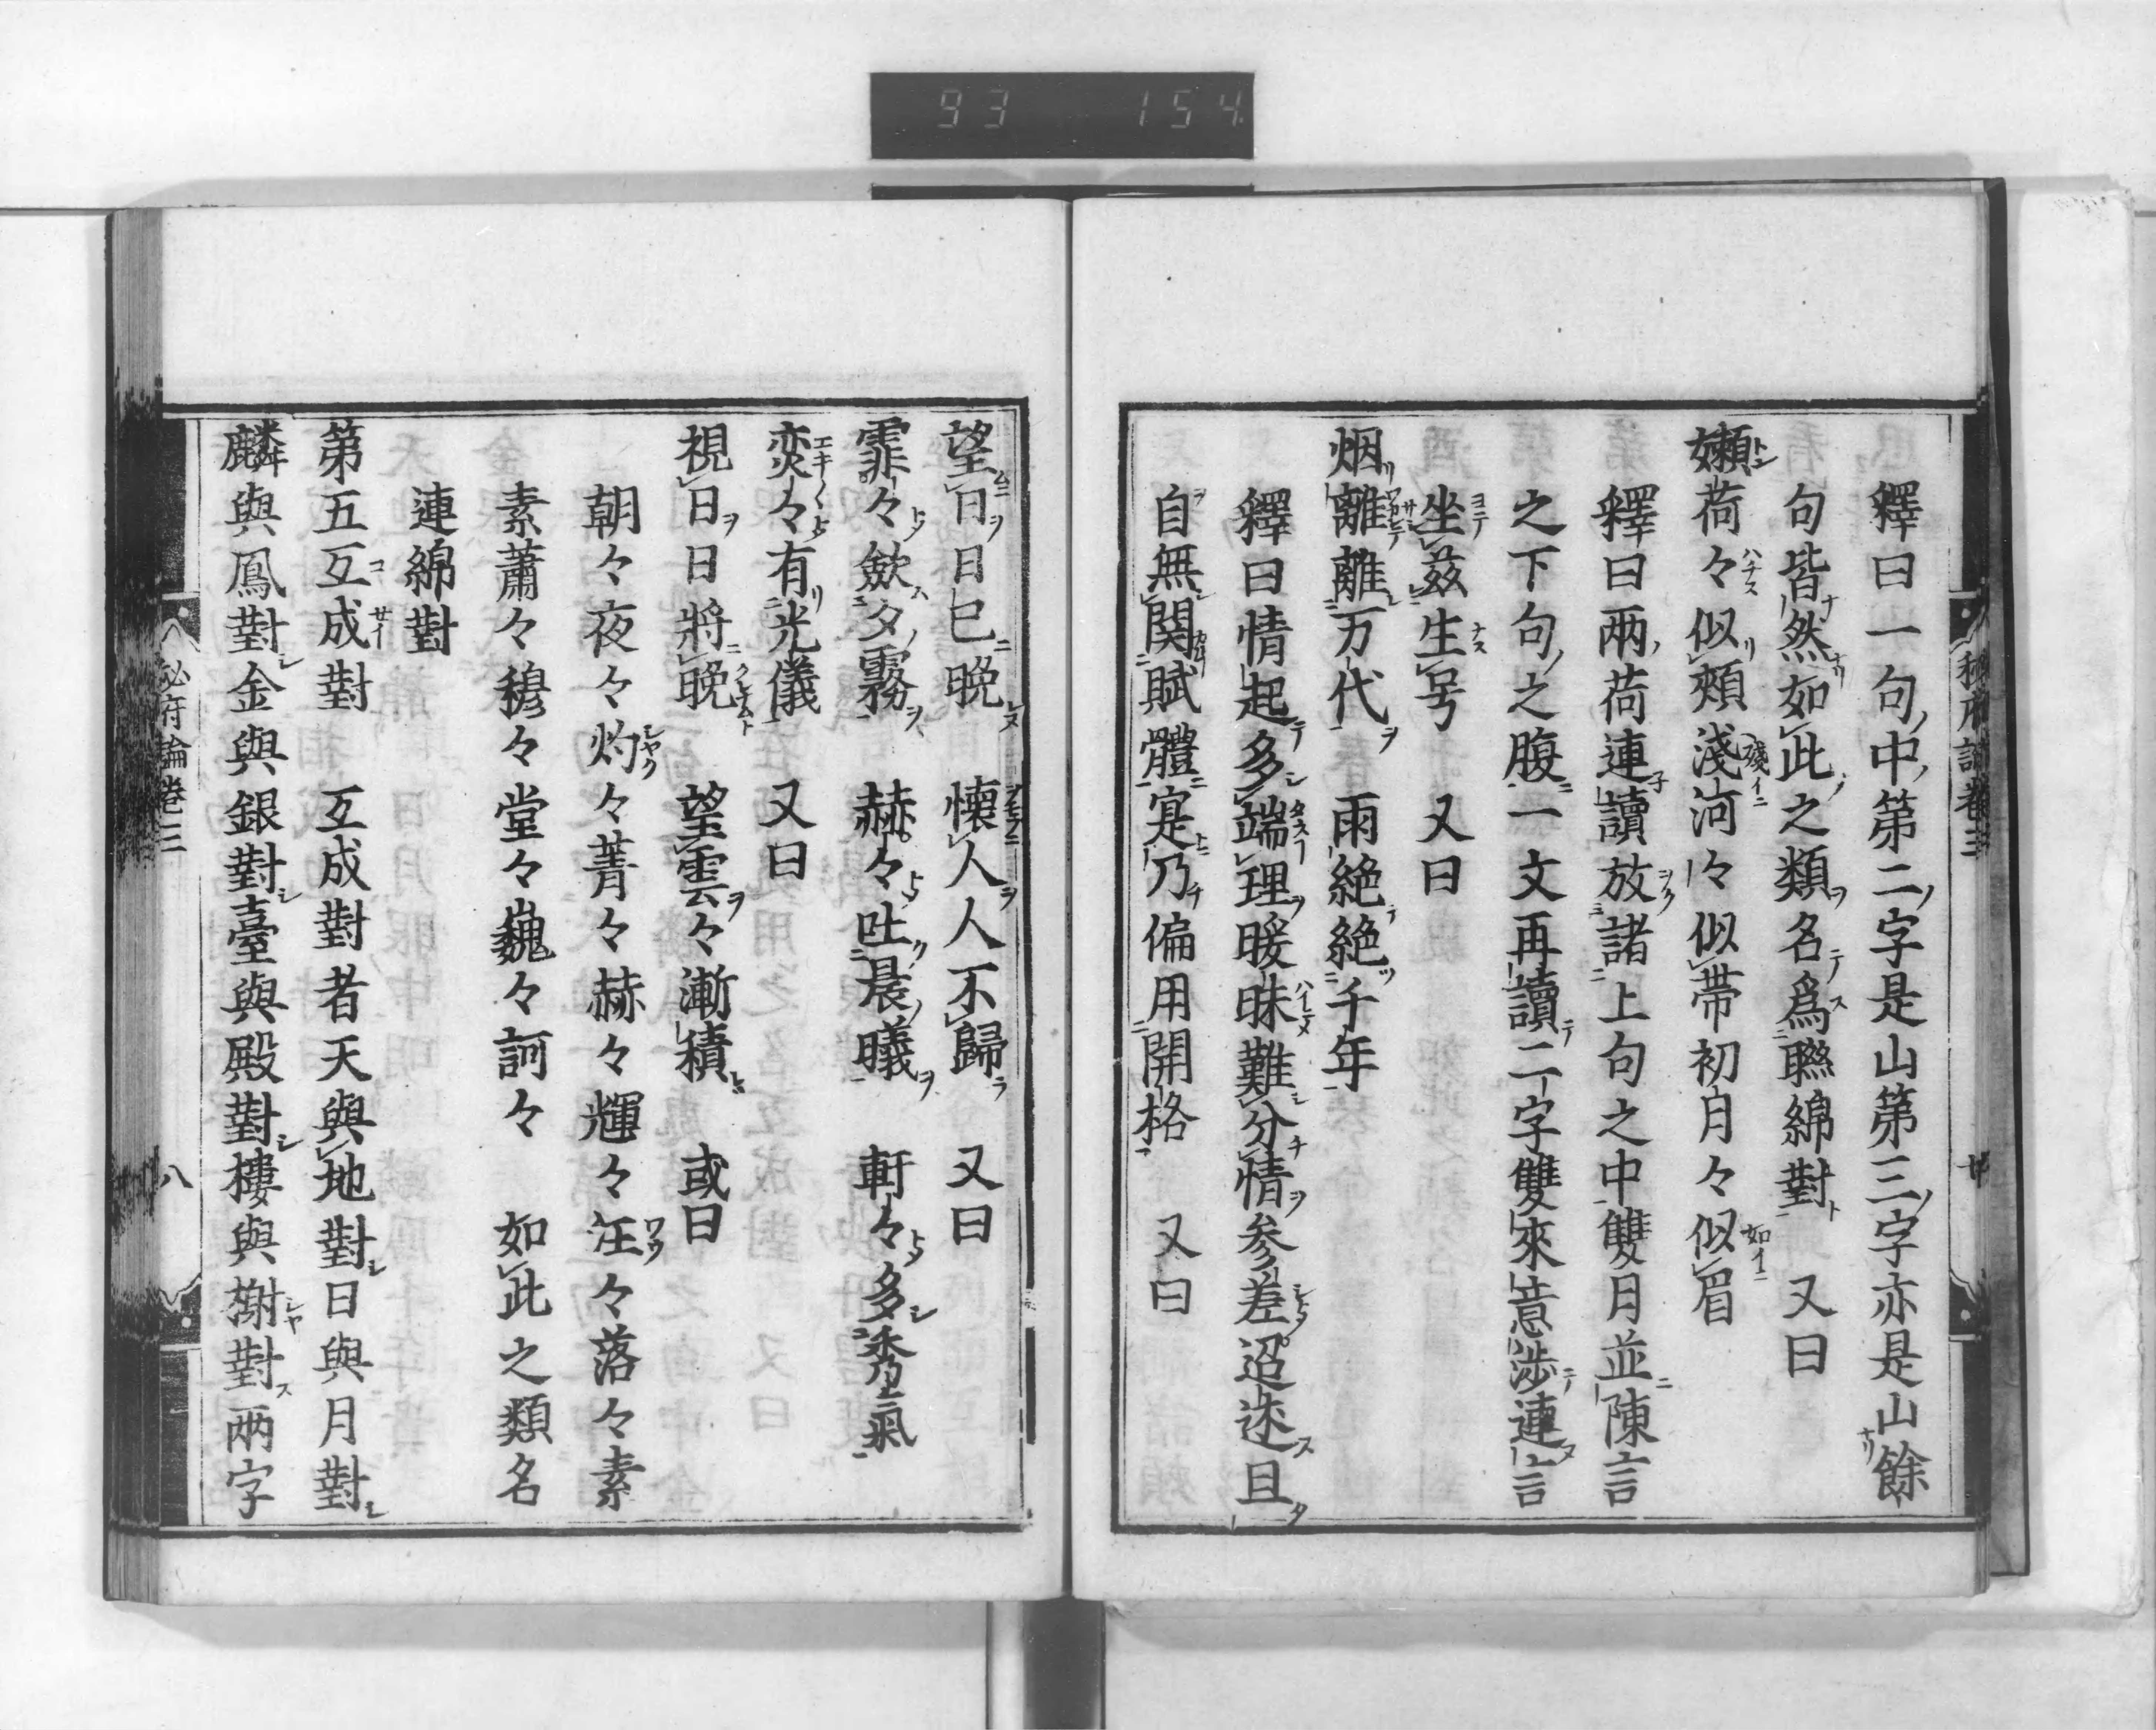 93 154
釋曰一句中第二字是山第三字亦是山餘
句皆然如此之類名爲聯綿對 又曰
嬾荷々似頰淺河々似帶初月々似眉
釋曰兩荷連讀放諸上句之中雙月並陳言
之下句之腹一文再讀二字雙來意涉連言
坐茲生号 又曰
烟離離万代 雨絶絶千年
釋曰情起多端理暖昧難分情参差迢迭且
自無関賦體寔乃偏用開格 又曰
望日日已晩 懐人人不歸 又曰
霏々歛夕霧 赫々吐晨曦 軒々多秀氣
奕々有光儀 又曰
視日日將晩 望雲々漸積 或曰
朝々夜々灼々菁々赫々輝々汪々落々素
素蕭々穆々堂々巍々訶々 如此之類名
連綿對
第五互成對 互成對者天與地對日與月對
麟與鳳對金與銀對臺與殿對樓與榭對兩字
秘府論卷三
八